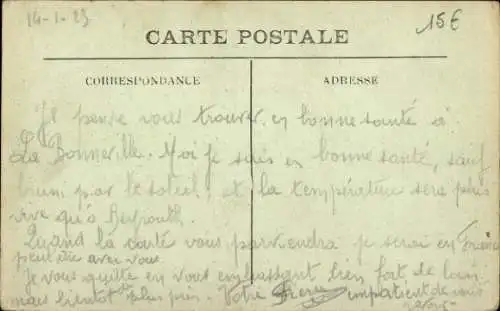 14-1-23
15€
CARTE POSTALE
CORRESPONDANCE
ADRESSE
Je pense vous trouver en bonne santé à
La Bonneville. Moi je suis en bonne santé, sauf
bruni par le soleil, et la température sera plus
vive qu'à Beyrouth.
Quand la carte vous parviendra je serai en France
peut être avec vous.
Je vous quitte en vous embrassant bien fort de loin
mais bientôt de plus près. Votre frère impatient de vous